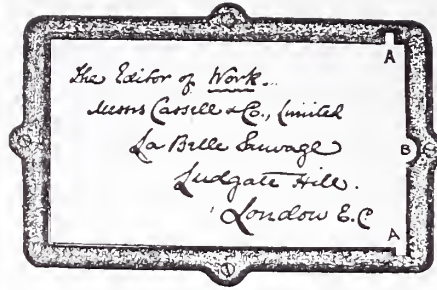 The Editor of Work.
Messrs Cassell & Co., Limited
La Belle Sauvage
Ludgate Hill.
London E.C.
A
B
A